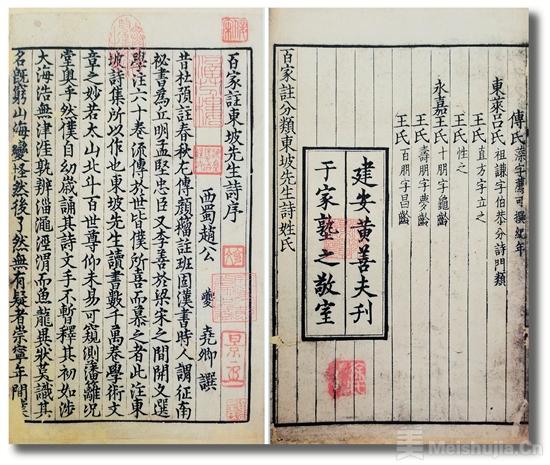 傅氏 藻字薦可撰紀年
東萊呂氏 祖謙字伯恭分詩門類
王氏 直方字立之
王氏 性之
永嘉王氏 十朋字龜齡
王氏 壽朋字夢齡
王氏 百朋字昌齡
建安黃善夫刊
于家塾之敬室
百家註分類東坡先生詩姓氏
百家註東坡先生詩序
西蜀趙公 夔 堯卿 譔
昔杜預註春秋左傳顏籀註班固漢書時人謂征南
秘書為立明孟堅忠臣又李善於梁宋之間開文選
學注六十卷流傳於世皆僕所喜而慕之者此注東
坡詩集所以作也東坡先生讀書數千萬卷學術文
章之妙若太山北斗百世尊仰未易可窺測藩籬況
堂奧乎然僕自幼歲誦其詩文手不暫釋其初如涉
大海浩無津涯孰辨淄澠涇渭而魚龍異狀莫識其
名既窮山海變怪然後了然無有疑者崇寧年間僕
美 Meishujia.Cn